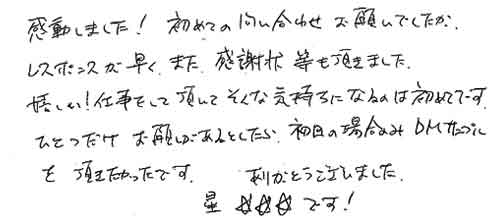 感動しました! 初めての問い合わせ お願いでしたが、
レスポンスが早く、また、感謝状 等も頂きました。
嬉しい!仕事をして頂いて そんな気持ちになるのは初めてです。
ひとつだけ お願いがあるとしたら、初回の場合のみ DMサンプル
を 頂きたかったです。 ありがとうございました。
星 ☆☆☆ です!